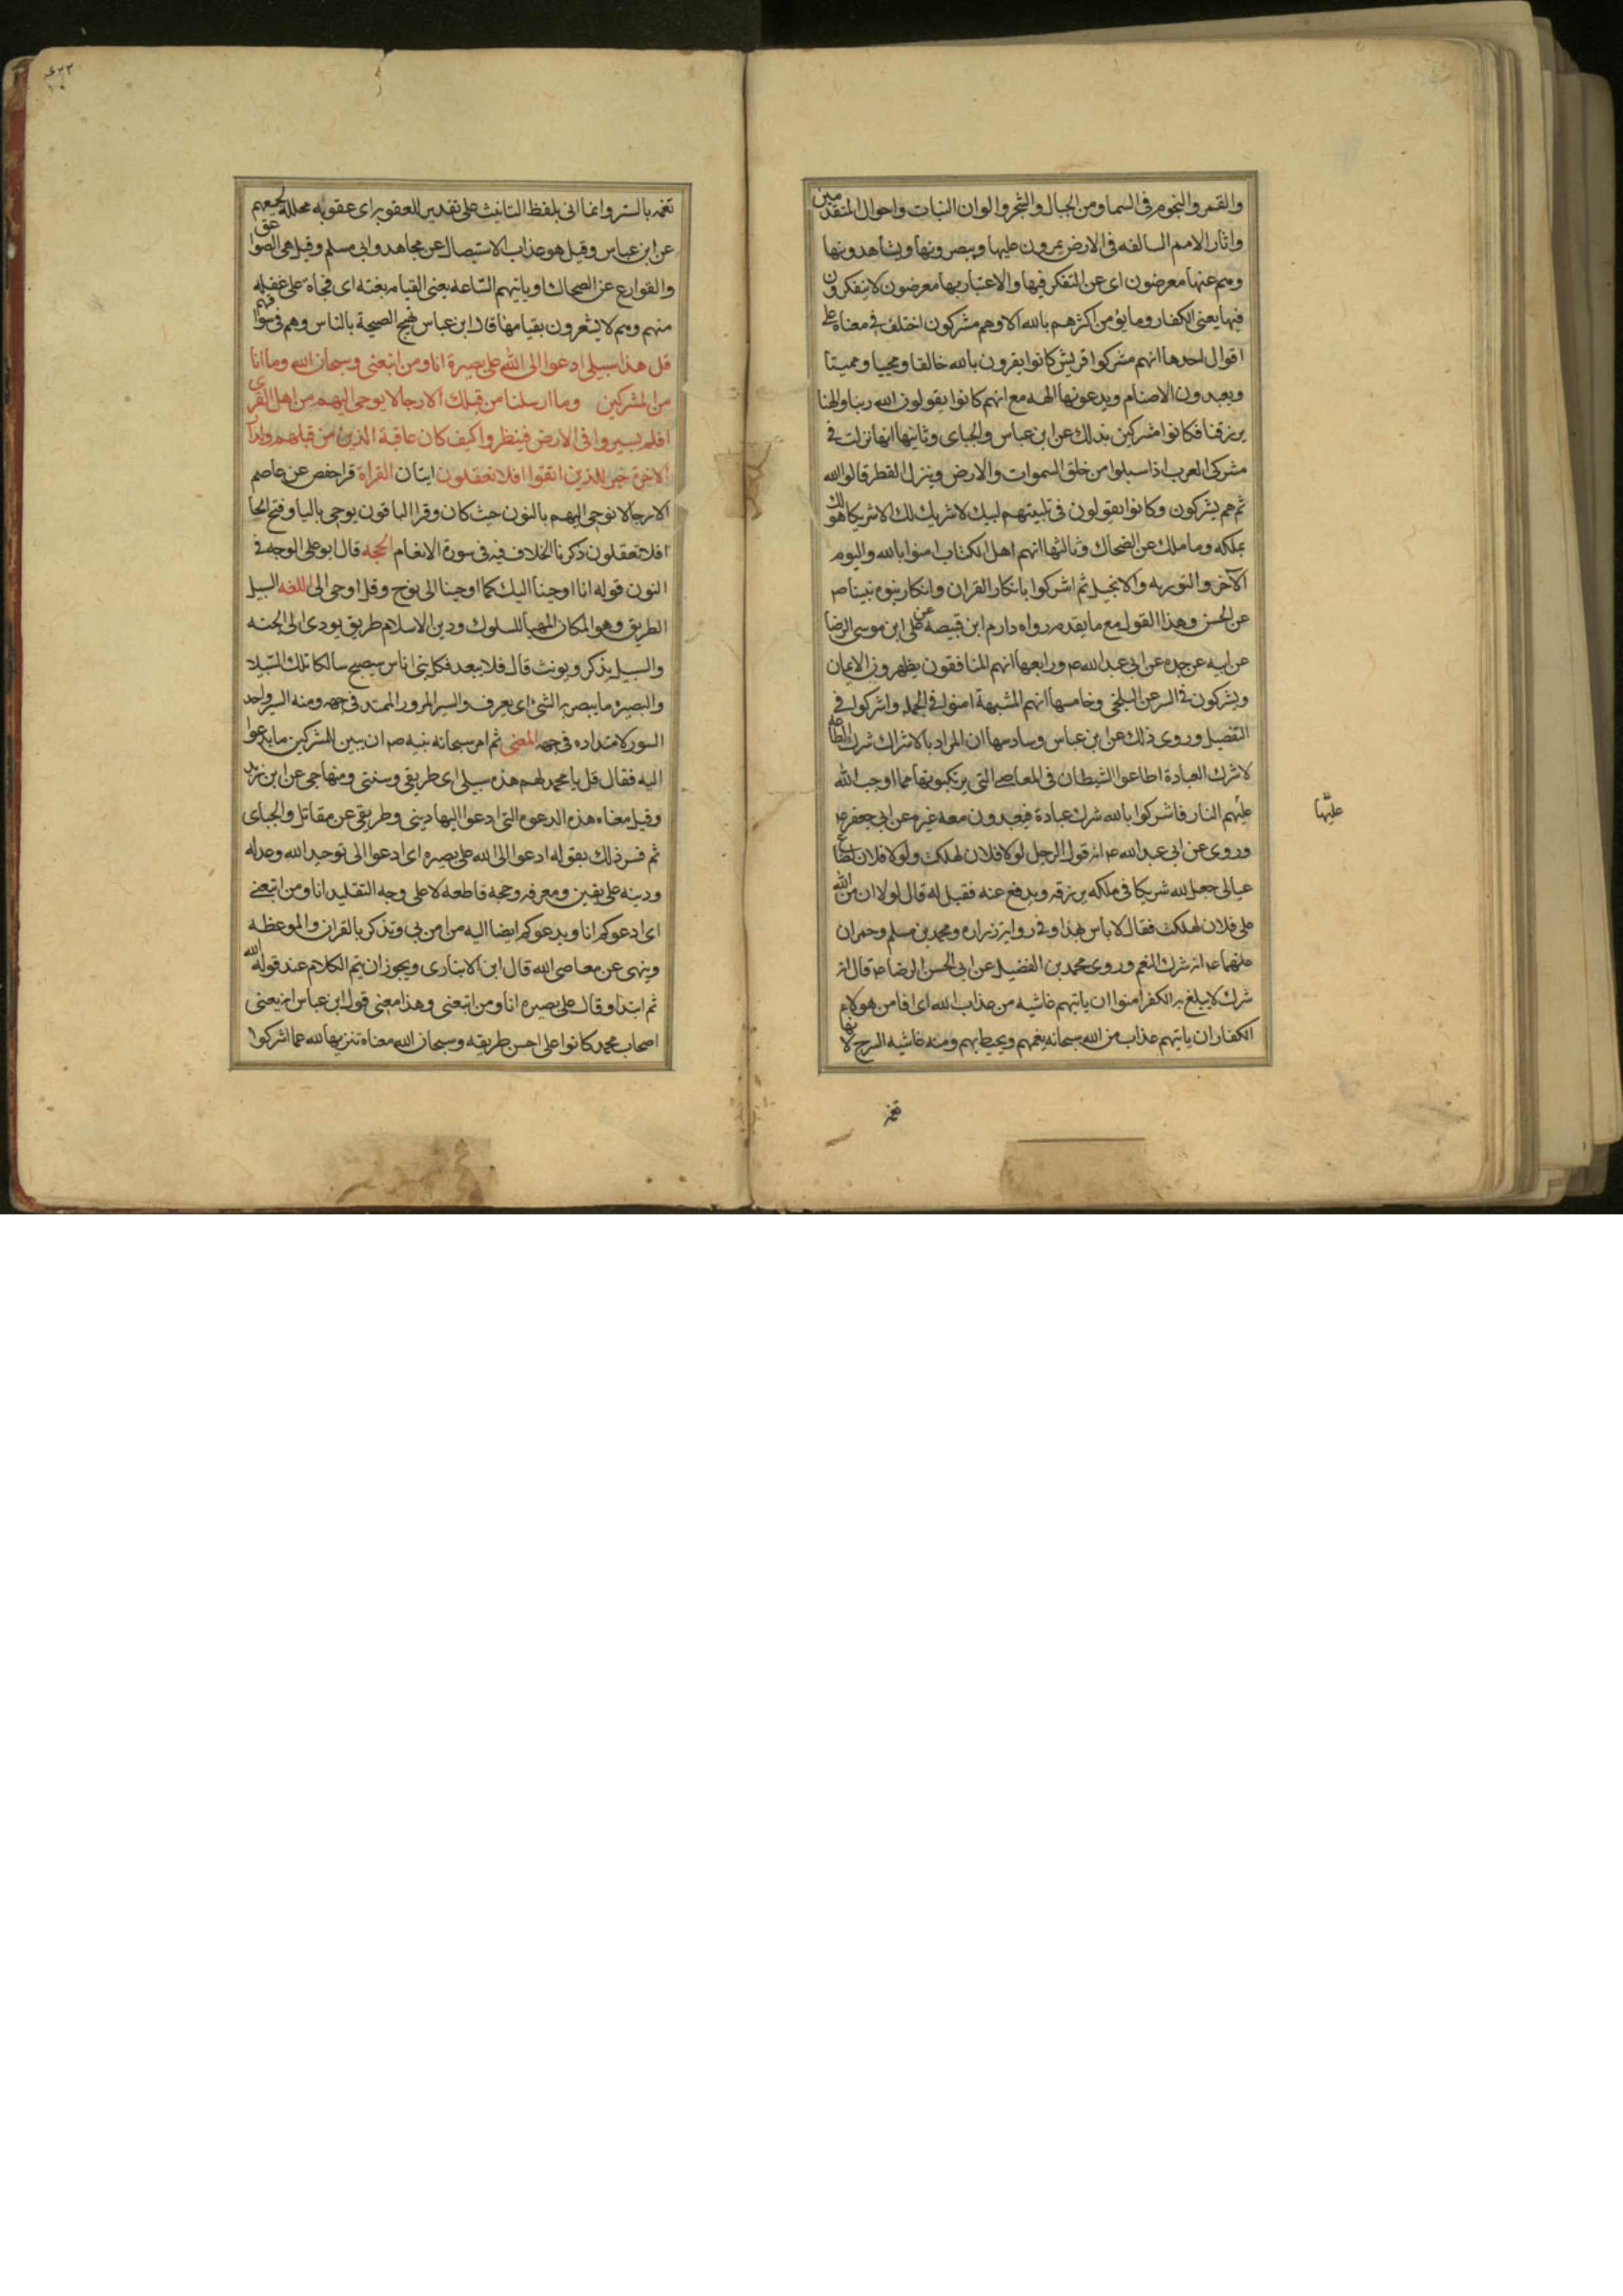 والقمر والنجوم فى السما ومن الجبال والشجر والوان النبات واحوال المتقدمين
واثار الامم السالفه فى الارض يمرون عليها ويبصرونها ويشاهدونها
وهم عنها معرضون اى عن التفكر فيها والاعتبار بها معرضون لا يتفكرون
فيها يعنى الكفار وما يؤمن اكثرهم بالله الا وهم مشركون اختلف فى معناه على
اقوال احدها انهم مشركوا قريش كانوا يقرون بالله خالقا ومحييا ومميتا
ويعبدون الاصنام ويدعونها الهه مع انهم كانوا يقولون الله ربنا والهنا
يرزقنا فكانوا مشركين بذلك عن ابن عباس والجباى وثانيها انها نزلت فى
مشركى العرب اذا سيلوا من خلق السموات والارض وينزل القطر قالوا الله
ثم هم يشركون وكانوا يقولون فى تلبيتهم لبيك لا شريك لك الا شريكا هو لك
تملكه وما ملك عن الضحاك وثالثها انهم اهل الكتاب امنوا بالله واليوم
الآخر والتوريه والانجيل ثم اشركوا بانكار القران وانكار نبوه نبينا ص
عن الحسن وهذا القول مع ما يقدم رواه دارم ابن قبيصه عن على ابن موسى الرضا
عن ابيه عن جده عن ابى عبد الله ع ورابعها انهم المنافقون يظهرون الايمان
ويشركون فى السر عن البلخى وخامسها انهم المشبهة امنوا فى الجمله واشركوا فى
التفصيل وروى ذلك عن ابن عباس وسادسها ان المراد بالاشراك شرك الطاعه
لا شرك العبادة اطاعوا الشيطان فى المعاصى التى يرتكبونها مما اوجب الله
عليهم النار فاشركوا بالله شرك عبادة فيعبدون معه غيره عن ابى جعفر ع
عليها
وروى عن ابى عبد الله ع انه قول الرجل لولا فلان لهلكت ولولا فلان لضاع
عيالى جعل لله شريكا فى ملكه يرزقه ويدفع عنه فقيل له قال لولا ان من الله
على فلان لهلكت فقال لا باس بهذا وفى رواية زراره ومحمد بن مسلم وحمران
عنهما ع انه شرك النعم وروى محمد بن الفضيل عن ابى الحسن الرضا ع قال انه
شرك لا يبلغ به الكفر امنوا ان ياتيهم غاشيه من عذاب الله اى افامن هولاء
الكفار ان ياتيهم عذاب من الله سبحانه يعمهم ويحيط بهم ومنه غاشيه السرج لانها
تغمه
تغمه بالستر وانما اتى بلفظ التانيث على تقدير للعقوبه اى عقوبه مجلله لجميعهم
عن ابن عباس وقيل هو عذاب الاستيصال عن مجاهد وابى مسلم وقيل هى الصواعق
والقوارع عن الضحاك او ياتيهم الساعه يعنى القيامه بغته اى فجاة على غفله
منهم وهم لا يشعرون بقيامها قال ابن عباس تهيج الصيحة بالناس وهم فى اسواقهم
قل هذا سبيلى ادعوا الى الله على بصيرة انا ومن اتبعنى وسبحان الله وما انا
من المشركين وما ارسلنا من قبلك الا رجالا يوحى اليهم من اهل القرى
افلم يسيروا فى الارض فينظروا كيف كان عاقبة الذين من قبلهم ولدا
الاخرة خير للذين اتقوا افلا تعقلون ايتان القراة قرا حفص عن عاصم
الا رجالا نوحى اليهم بالنون حيث كان وقرا الباقون يوحى باليا وفتح الحا
افلا تعقلون ذكرنا الخلاف فيه فى سورة الانعام الحجه قال ابو على الوجه فى
النون قوله انا اوحينا اليك كما اوحينا الى نوح وقل اوحى الى اللغه السبيل
الطريق وهو المكان المهيا للسلوك ودين الاسلام طريق يودى الى الجنه
والسبيل يذكر ويونث قال فلا تبعد فكل بنى اناس سيصبح سالكا تلك السبيلا
والبصيره ما يبصر به الشئ اى يعرف والسير المرور الممتد فى جهه ومنه السير واحد
السيور لامتداده فى جهه المعنى ثم امر سبحانه نبيه ص ان يبين للمشركين ما يدعوا
اليه فقال قل يا محمد لهم هذه سبيلى اى طريقى وسنتى ومنهاجى عن ابن زيد
وقيل معناه هذه الدعوه التى ادعوا اليها دينى وطريقى عن مقاتل والجباى
ثم فسر ذلك بقوله ادعوا الى الله على بصيره اى ادعوا الى توحيد الله وعدله
ودينه على يقين ومعرفه وحجه قاطعه لا على وجه التقليد انا ومن اتبعنى
اى ادعوكم انا ويدعوكم ايضا اليه من امن بى ويذكر بالقران والموعظه
وينهى عن معاصى الله قال ابن الانبارى ويجوز ان يتم الكلام عند قوله الله
ثم ابتدا وقال على بصيره انا ومن اتبعنى وهذا معنى قول ابن عباس انه يعنى
اصحاب محمد كانوا على احسن طريقه وسبحان الله معناه تنزيها لله عما اشركوا